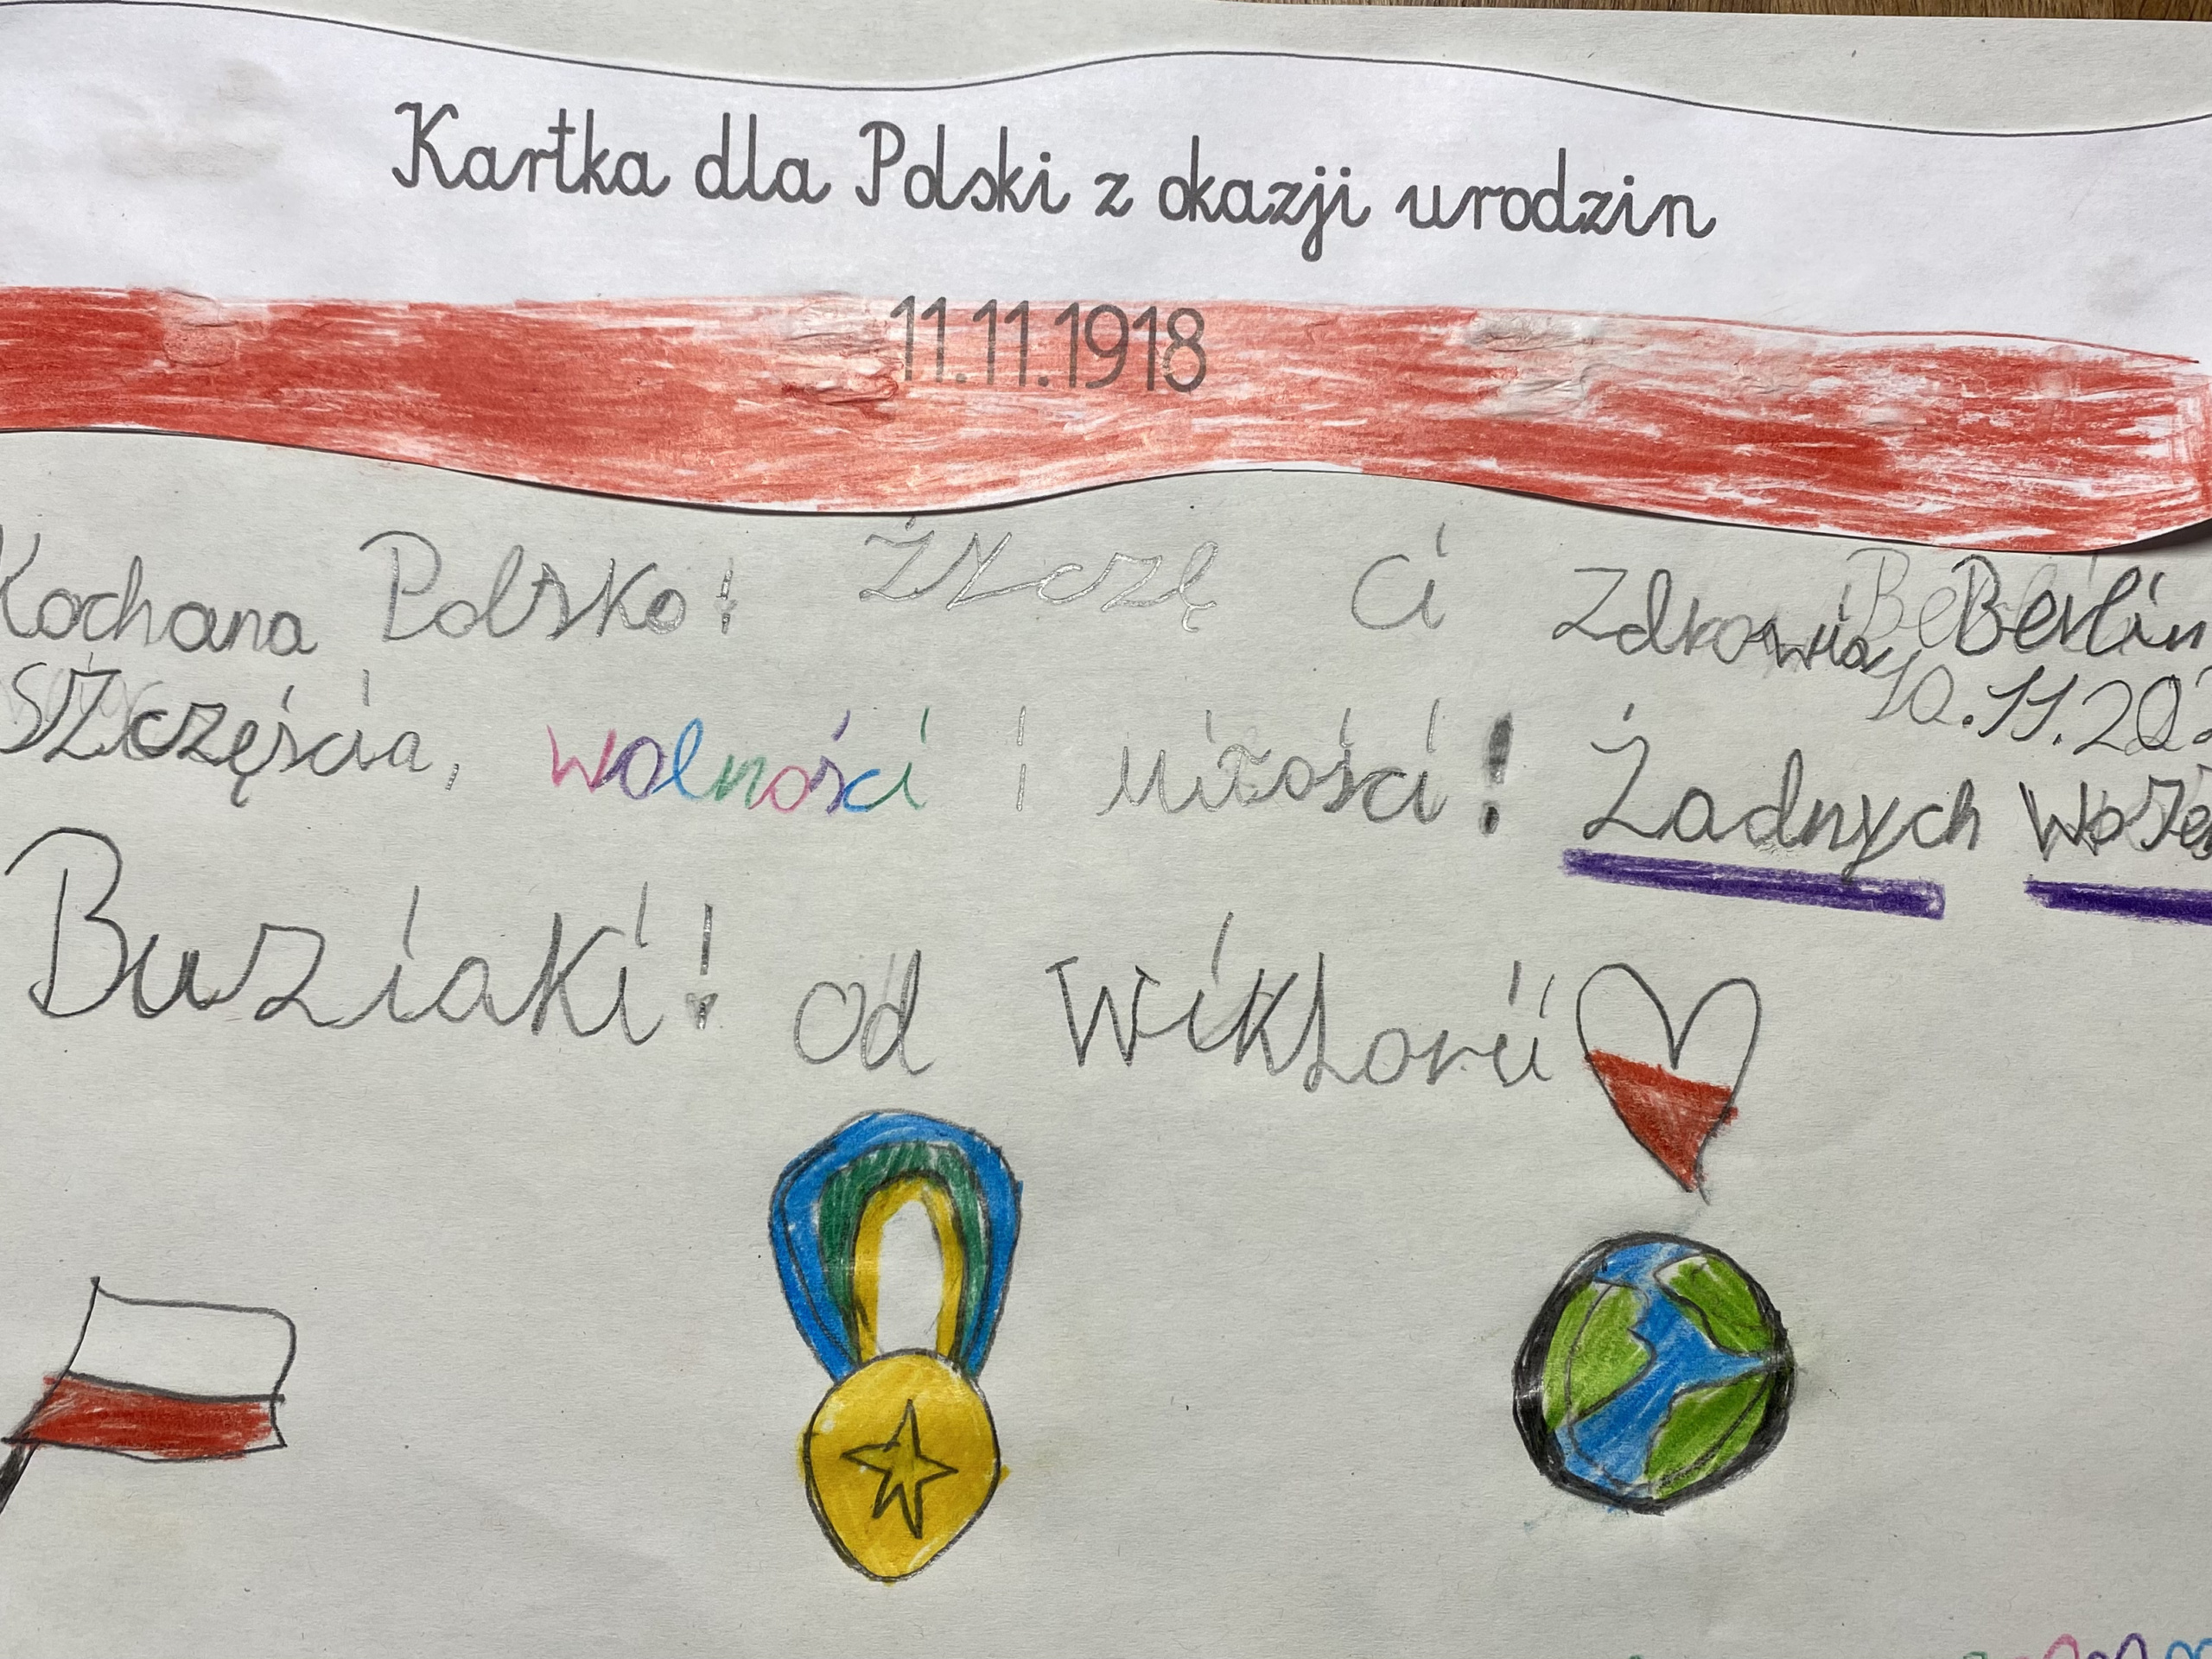 Kartka dla Polski z okazji urodzin
11.11.1918
Kochana Polsko! Życzę Ci Zdrowia,
Berlin
10.11.202
Szczęścia, wolności i miłości! Żadnych
Buziaki! od Wiktorii